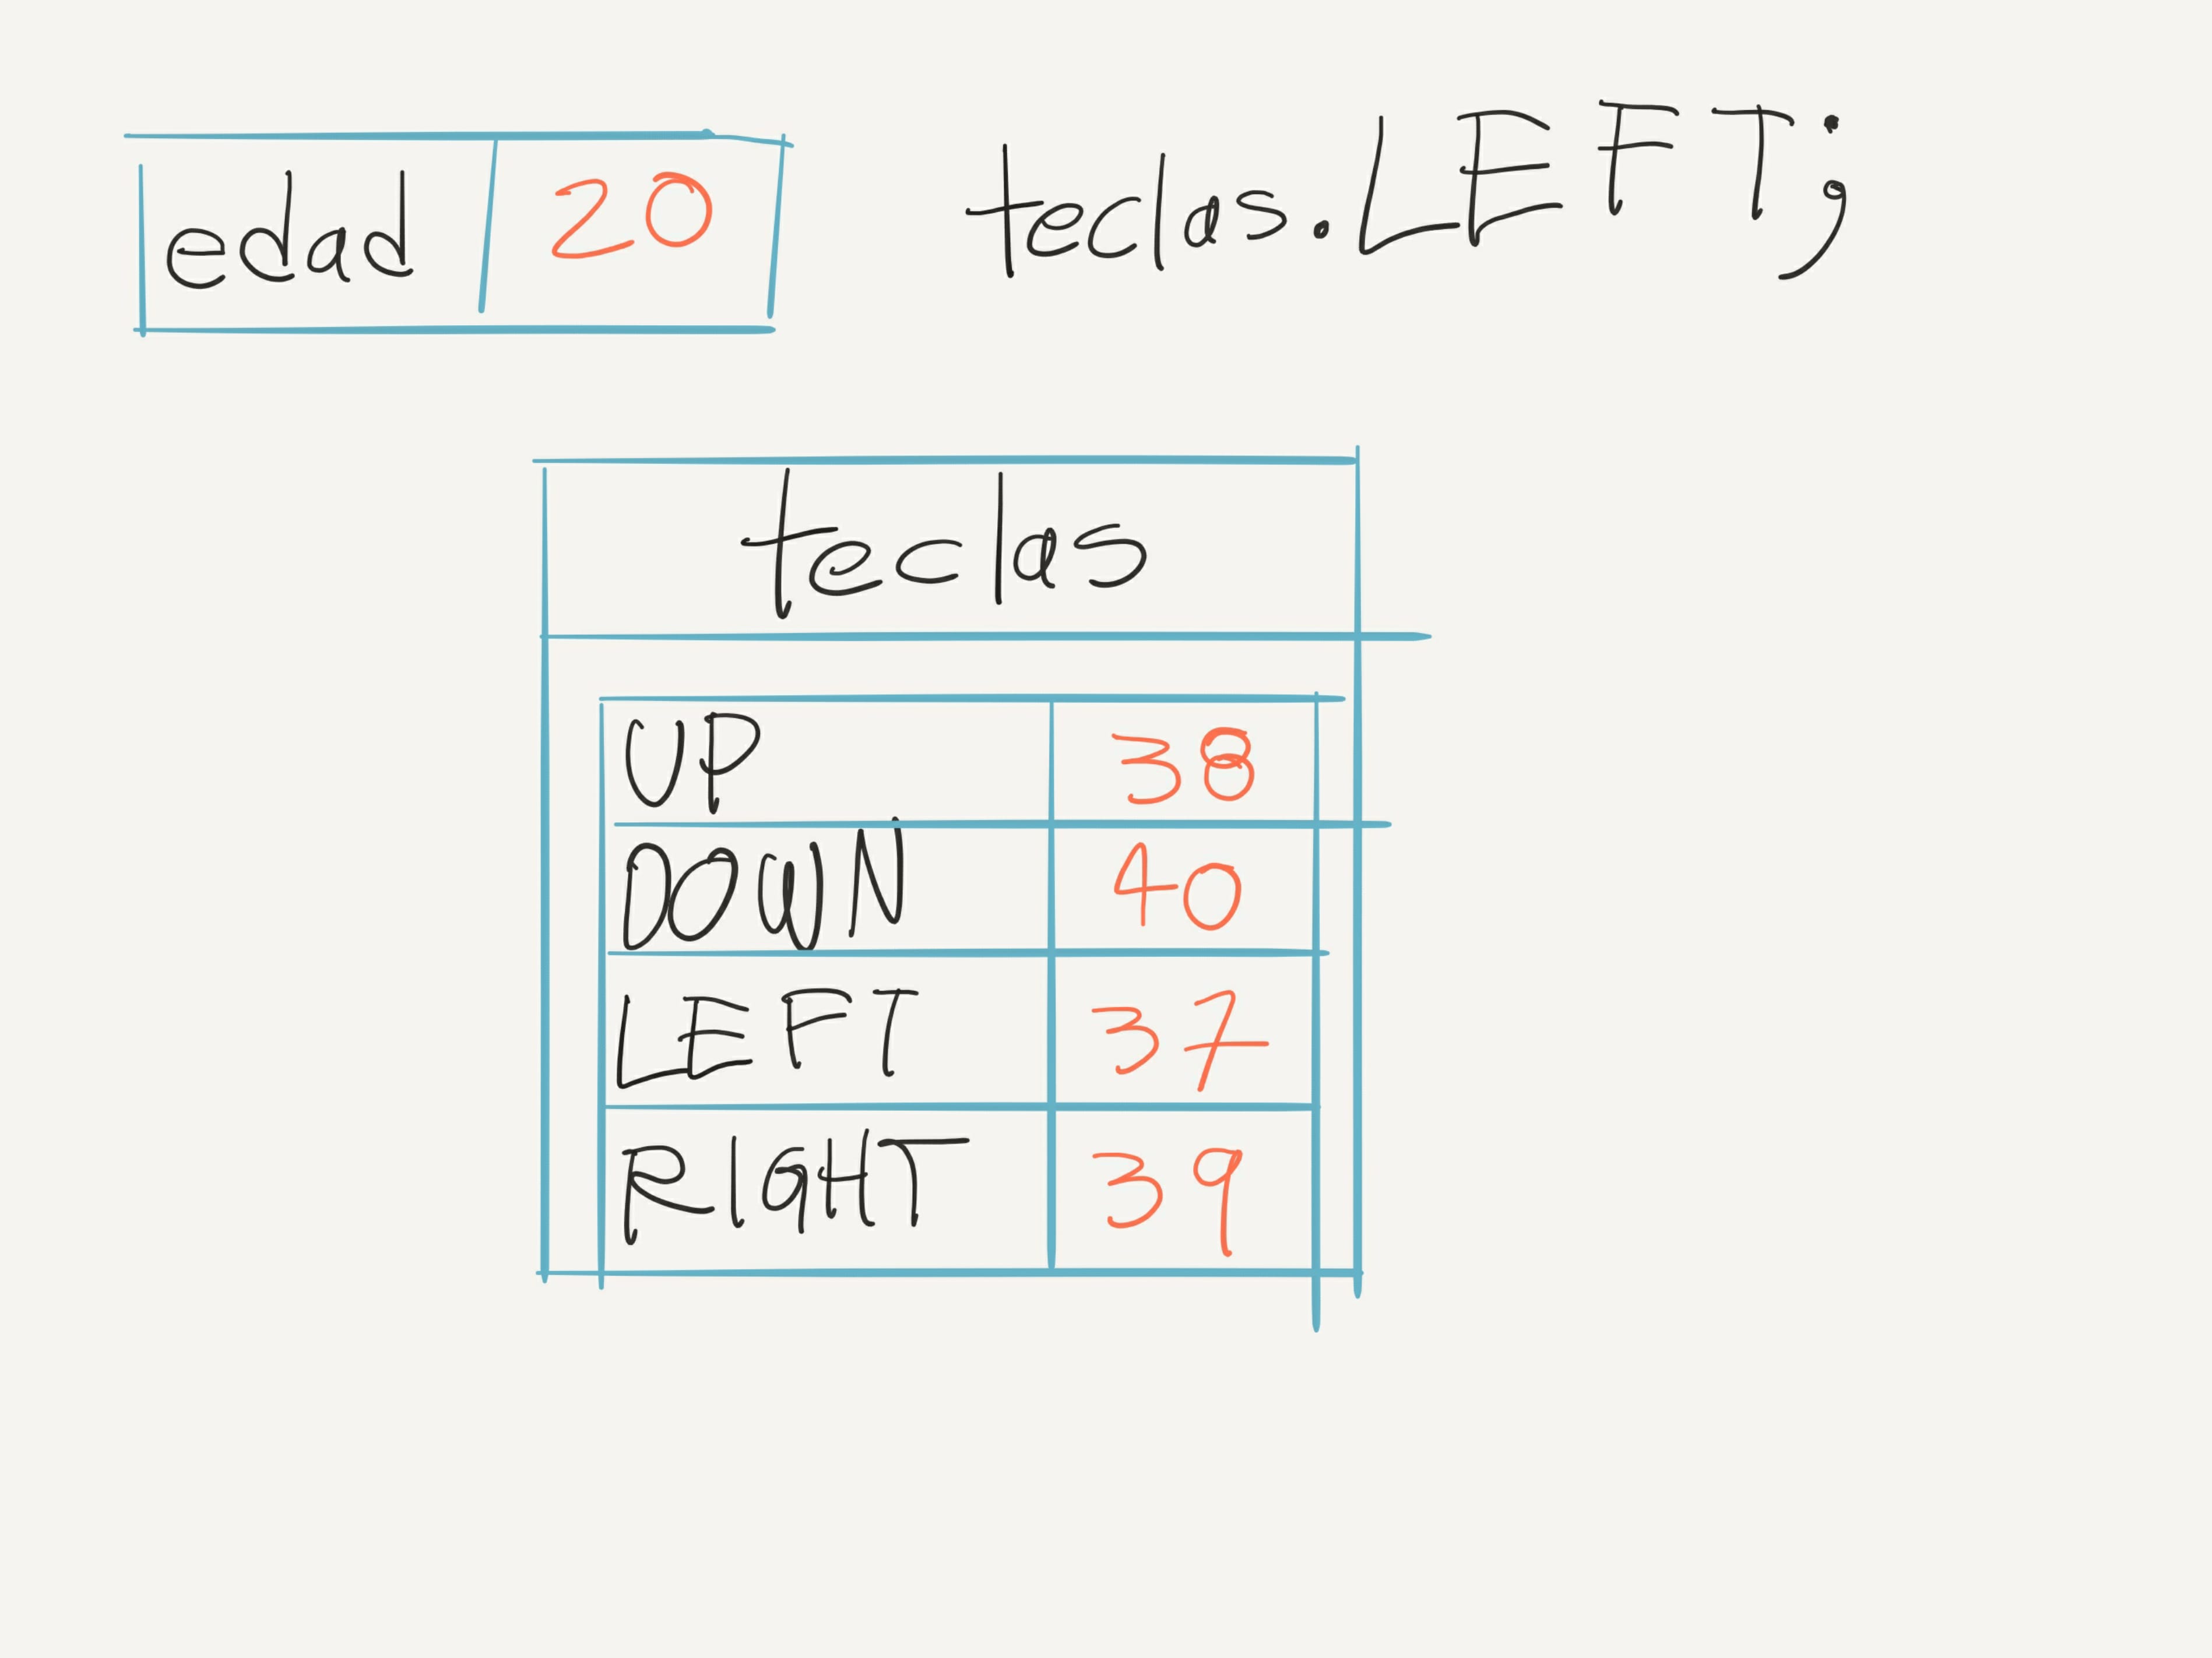 edad 20
teclas.LEFT;
teclas
UP 38
DOWN 40
LEFT 37
RIGHT 39